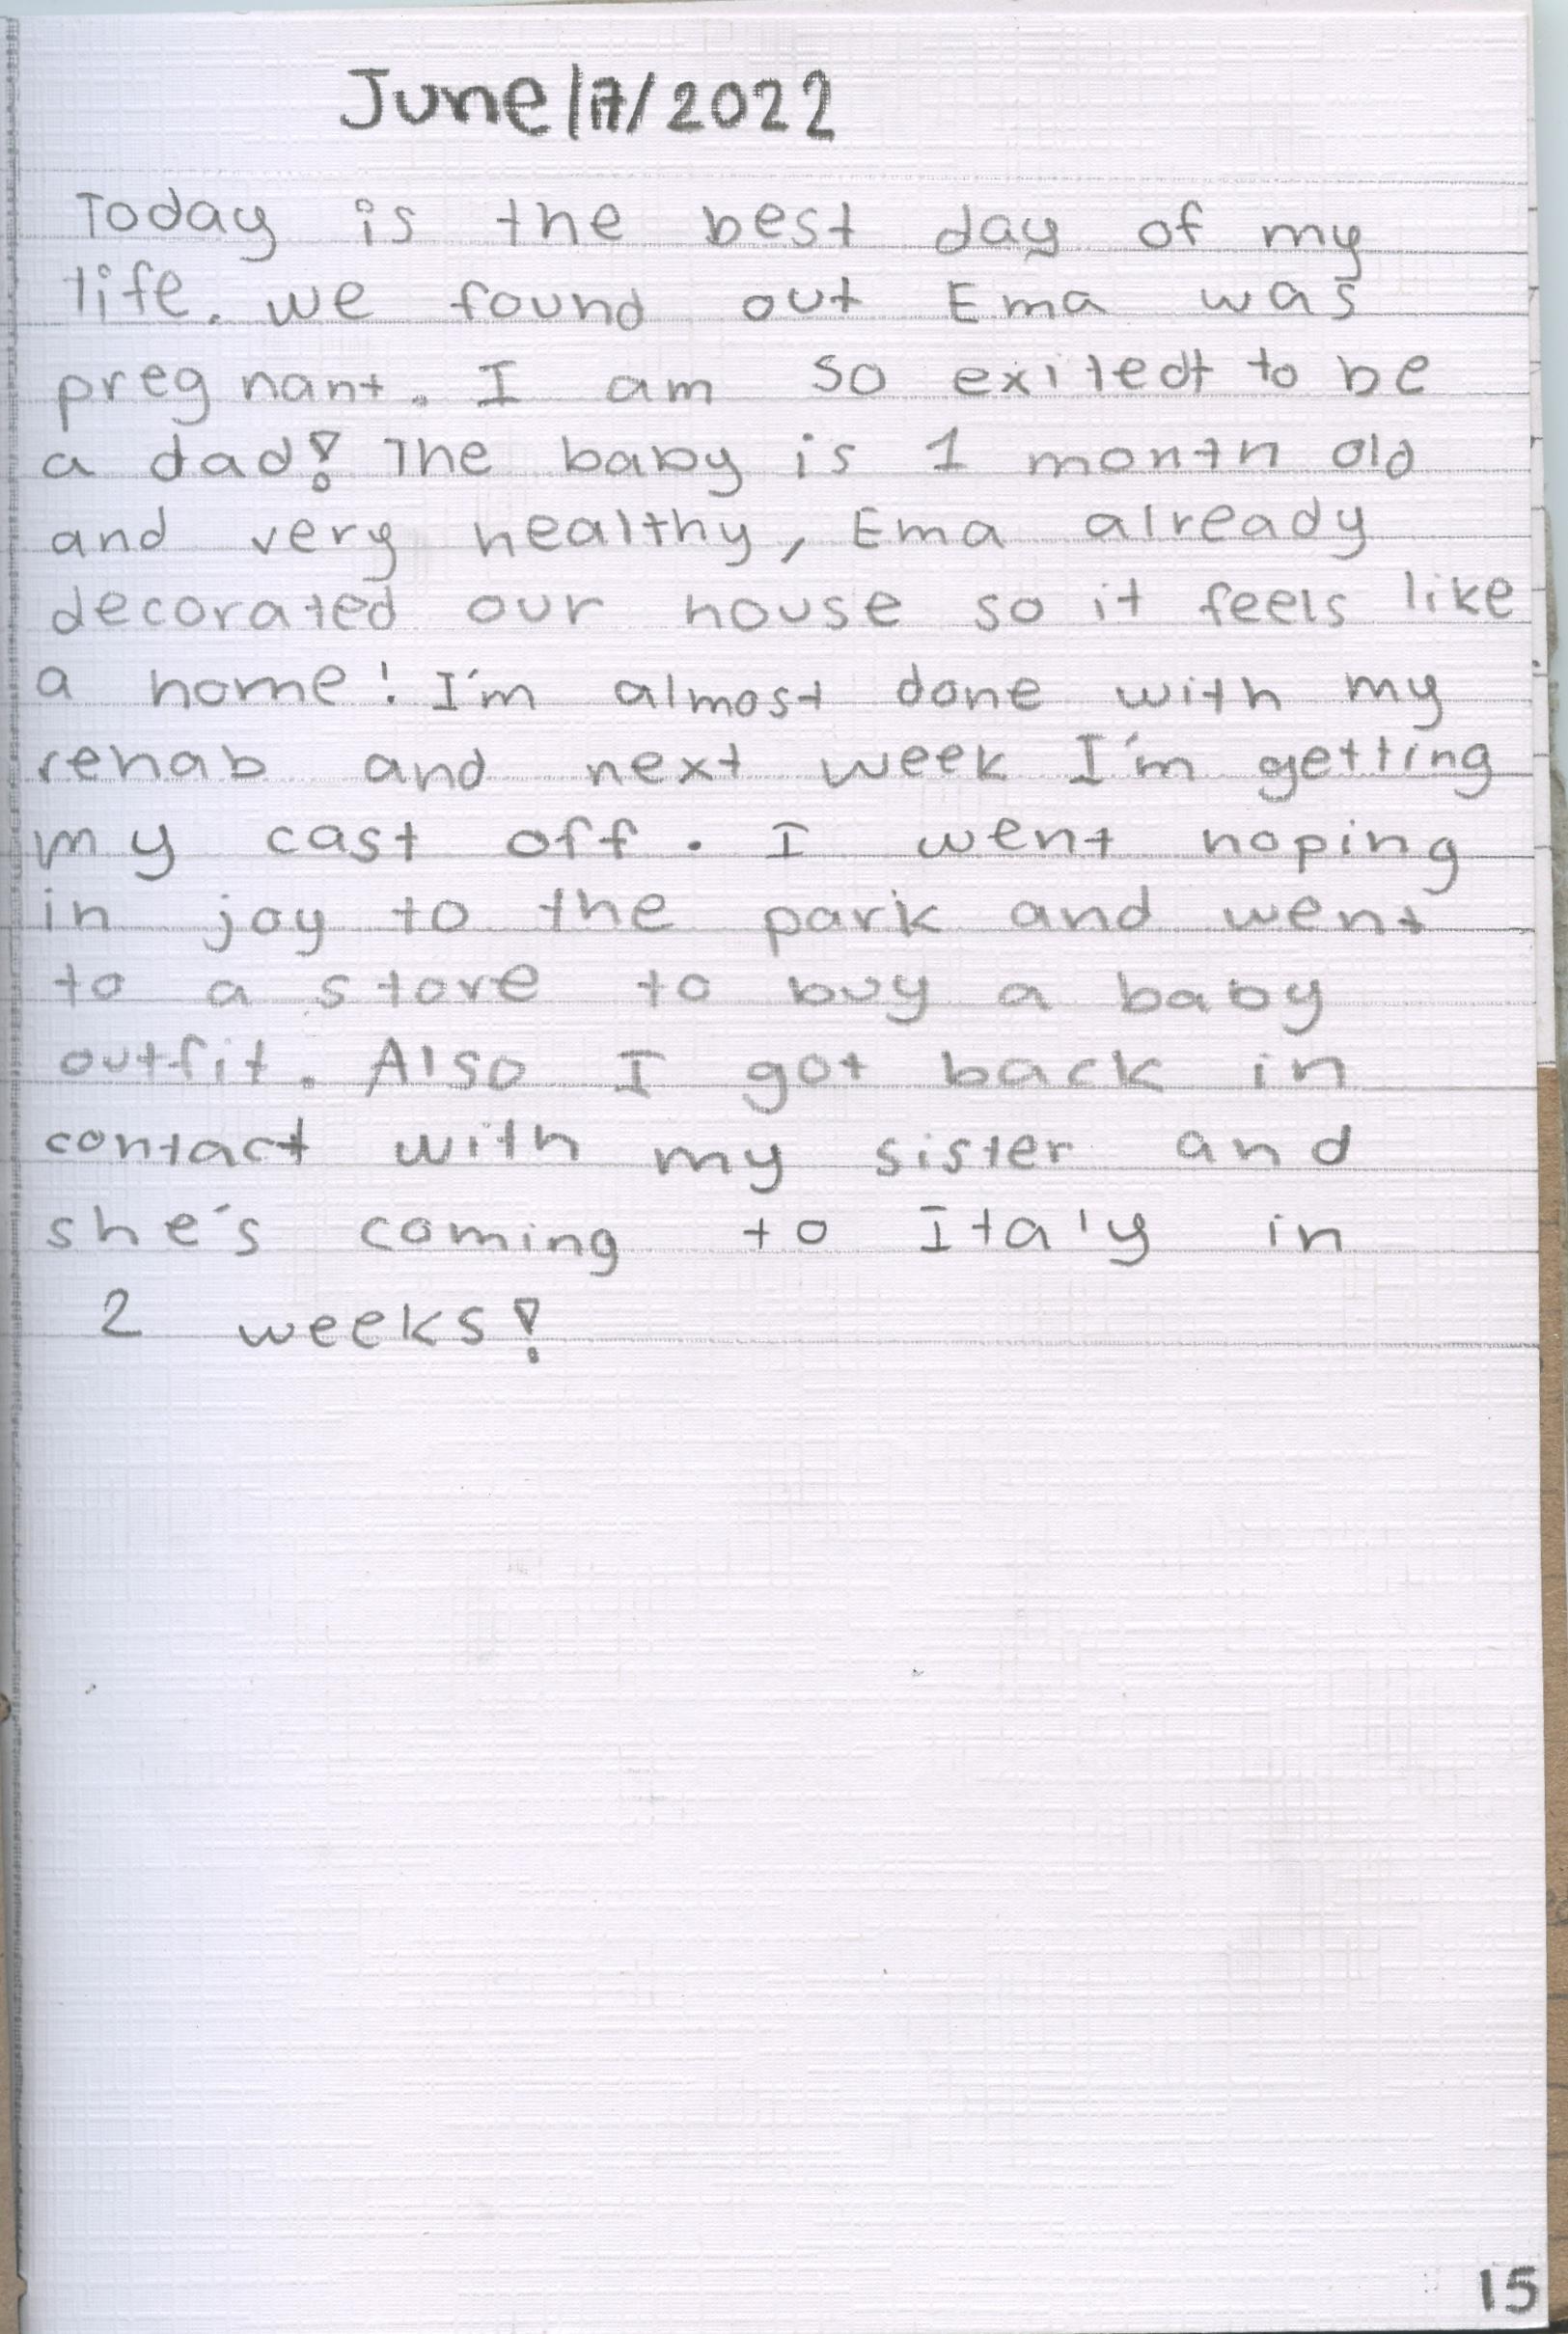 June/17/2022
Today is the best day of my
life. we found out Ema was
pregnant. I am so exitedt to be
a dad! The baby is 1 month old
and very healthy, Ema already
decorated our house so it feels like
a home! I'm almost done with my
rehab and next week I'm getting
my cast off. I went hoping
in joy to the park and went
to a store to buy a baby
outfit. Also I got back in
contact with my sister and
she's coming to Italy in
2 weeks!
15